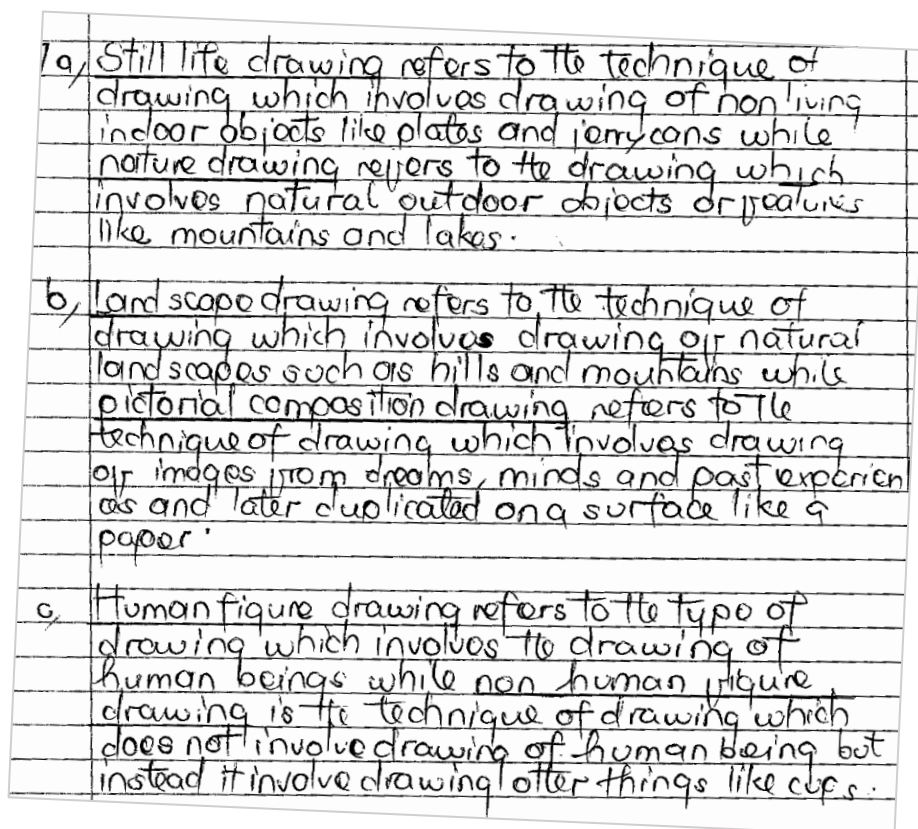 1a, Still life drawing refers to the technique of
drawing which involves drawing of non living
indoor objects like plates and jerrycans while
nature drawing refers to the drawing which
involves natural outdoor objects or features
like mountains and lakes.
b, Landscape drawing refers to the technique of
drawing which involves drawing of natural
landscapes such as hills and mountains while
pictorial composition drawing refers to the
technique of drawing which involves drawing
of images from dreams, minds and past experien
ces and later duplicated on a surface like a
paper.
c, Human figure drawing refers to the type of
drawing which involves the drawing of
human beings while non human figure
drawing is the technique of drawing which
does not involve drawing of human being but
instead it involve drawing other things like cups.